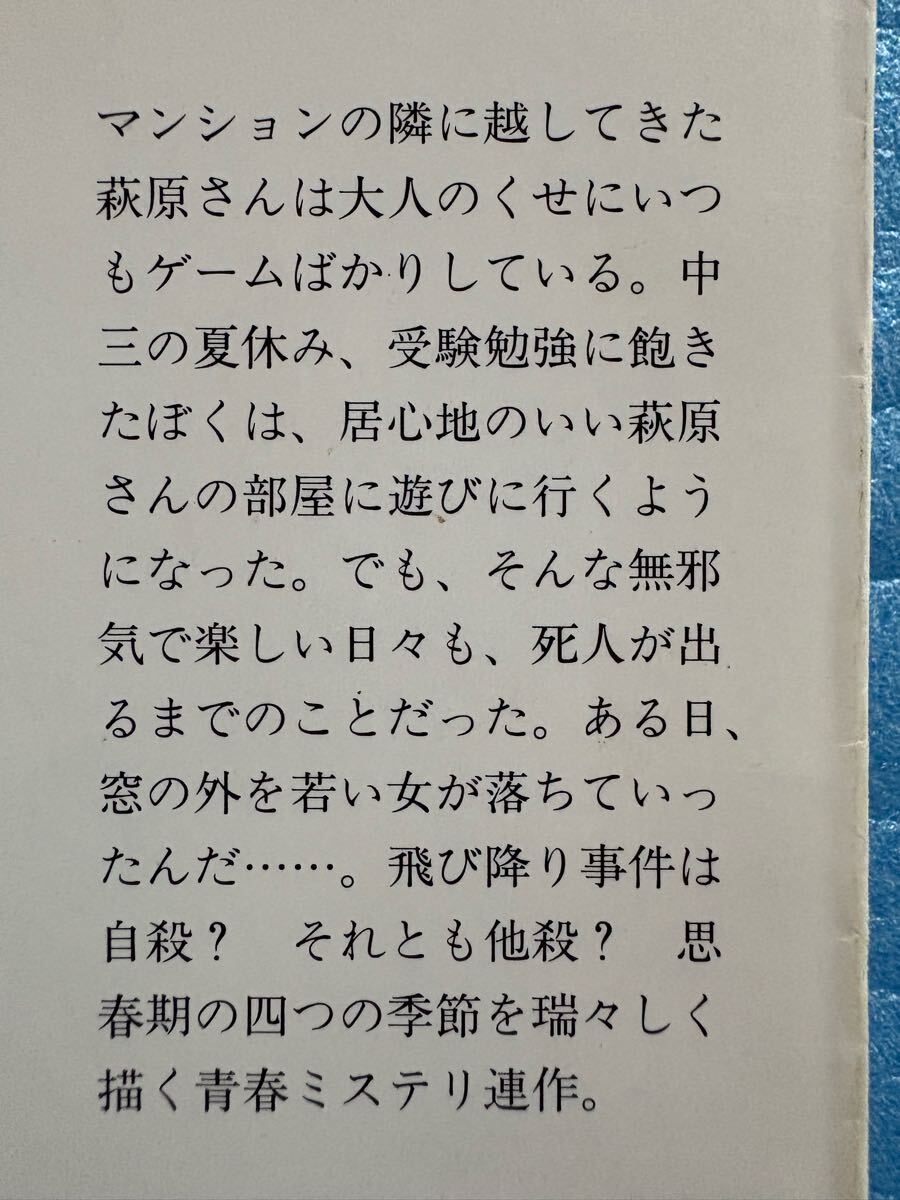 マンションの隣に越してきた
萩原さんは大人のくせにいつ
もゲームばかりしている。中
三の夏休み、受験勉強に飽き
たぼくは、居心地のいい萩原
さんの部屋に遊びに行くよう
になった。でも、そんな無邪
気で楽しい日々も、死人が出
るまでのことだった。ある日、
窓の外を若い女が落ちていっ
たんだ……。飛び降り事件は
自殺？　それとも他殺？　思
春期の四つの季節を瑞々しく
描く青春ミステリ連作。